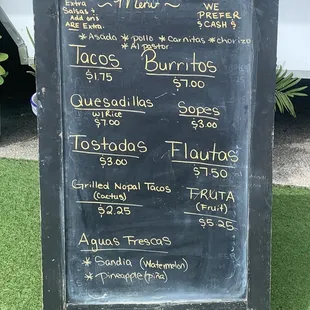 Extra
Salsas &
Add ons
ARE Extra.
~ Menu ~
WE
PREFER
$ CASH $
* Asada * pollo * Carnitas * chorizo
* Al pastor
Tacos
$1.75
Burritos
$7.00
Quesadillas
w/ Rice
$7.00
Sopes
$3.00
Tostadas
$3.00
Flautas
$7.50
Grilled Nopal Tacos
(Cactus)
$2.25
FRUTA
(Fruit)
$5.25
Aguas Frescas
* Sandia (Watermelon)
* pineapple (piña)